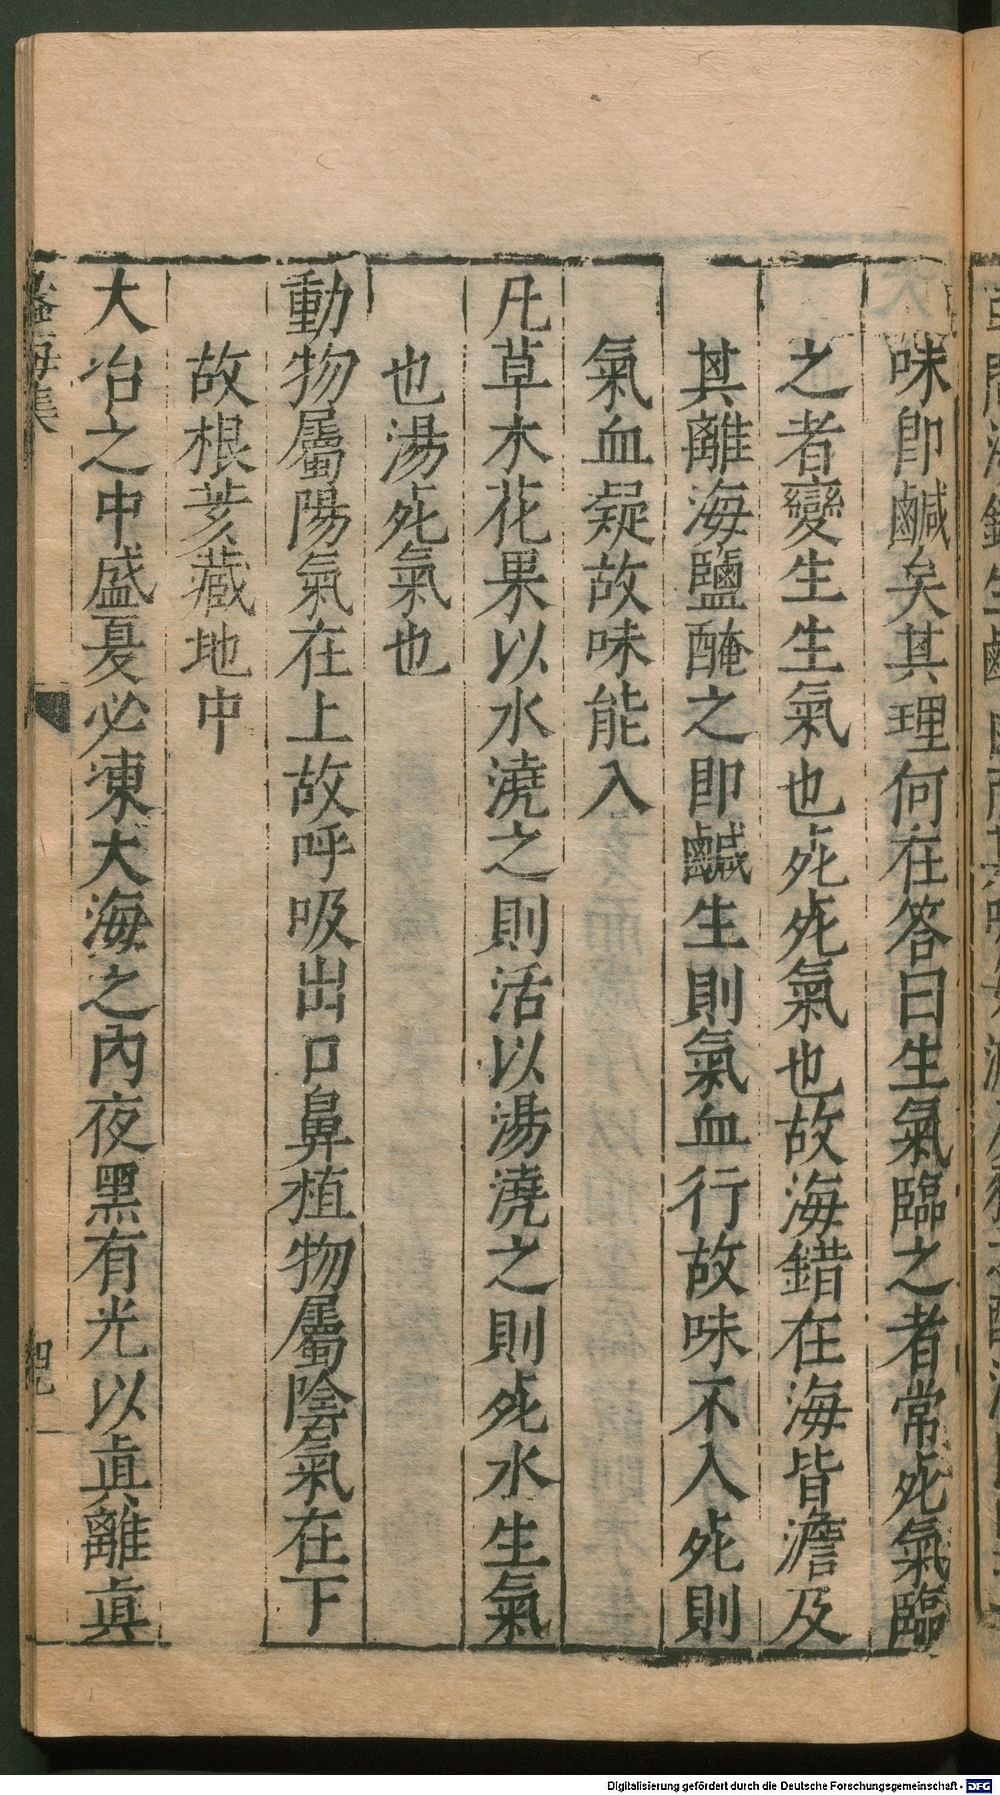 味即鹹矣其理何在答曰生氣臨之者常死氣臨
之者變生生氣也死死氣也故海錯在海皆澹及
其離海鹽醃之即鹹生則氣血行故味不入死則
氣血凝故味能入
凡草木花果以水澆之則活以湯澆之則死水生氣
也湯死氣也
動物屬陽氣在上故呼吸出口鼻植物屬陰氣在下
故根荄藏地中
大冶之中盛夏必凍大海之內夜黑有光以眞離眞
蠡海集
Digitalisierung gefördert durch die Deutsche Forschungsgemeinschaft - DFG